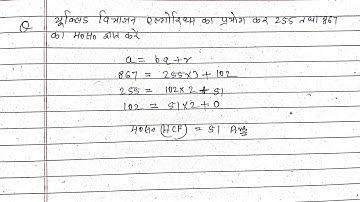 Q यूक्लिड विभाजन एल्गोरिथ्म का प्रयोग कर 255 तथा 867
का म०स० ज्ञात करे
a = bq+r
867 = 255×3 + 102
255 = 102×2 + 51
102 = 51×2 + 0
म०स० (HCF) = 51 Ans